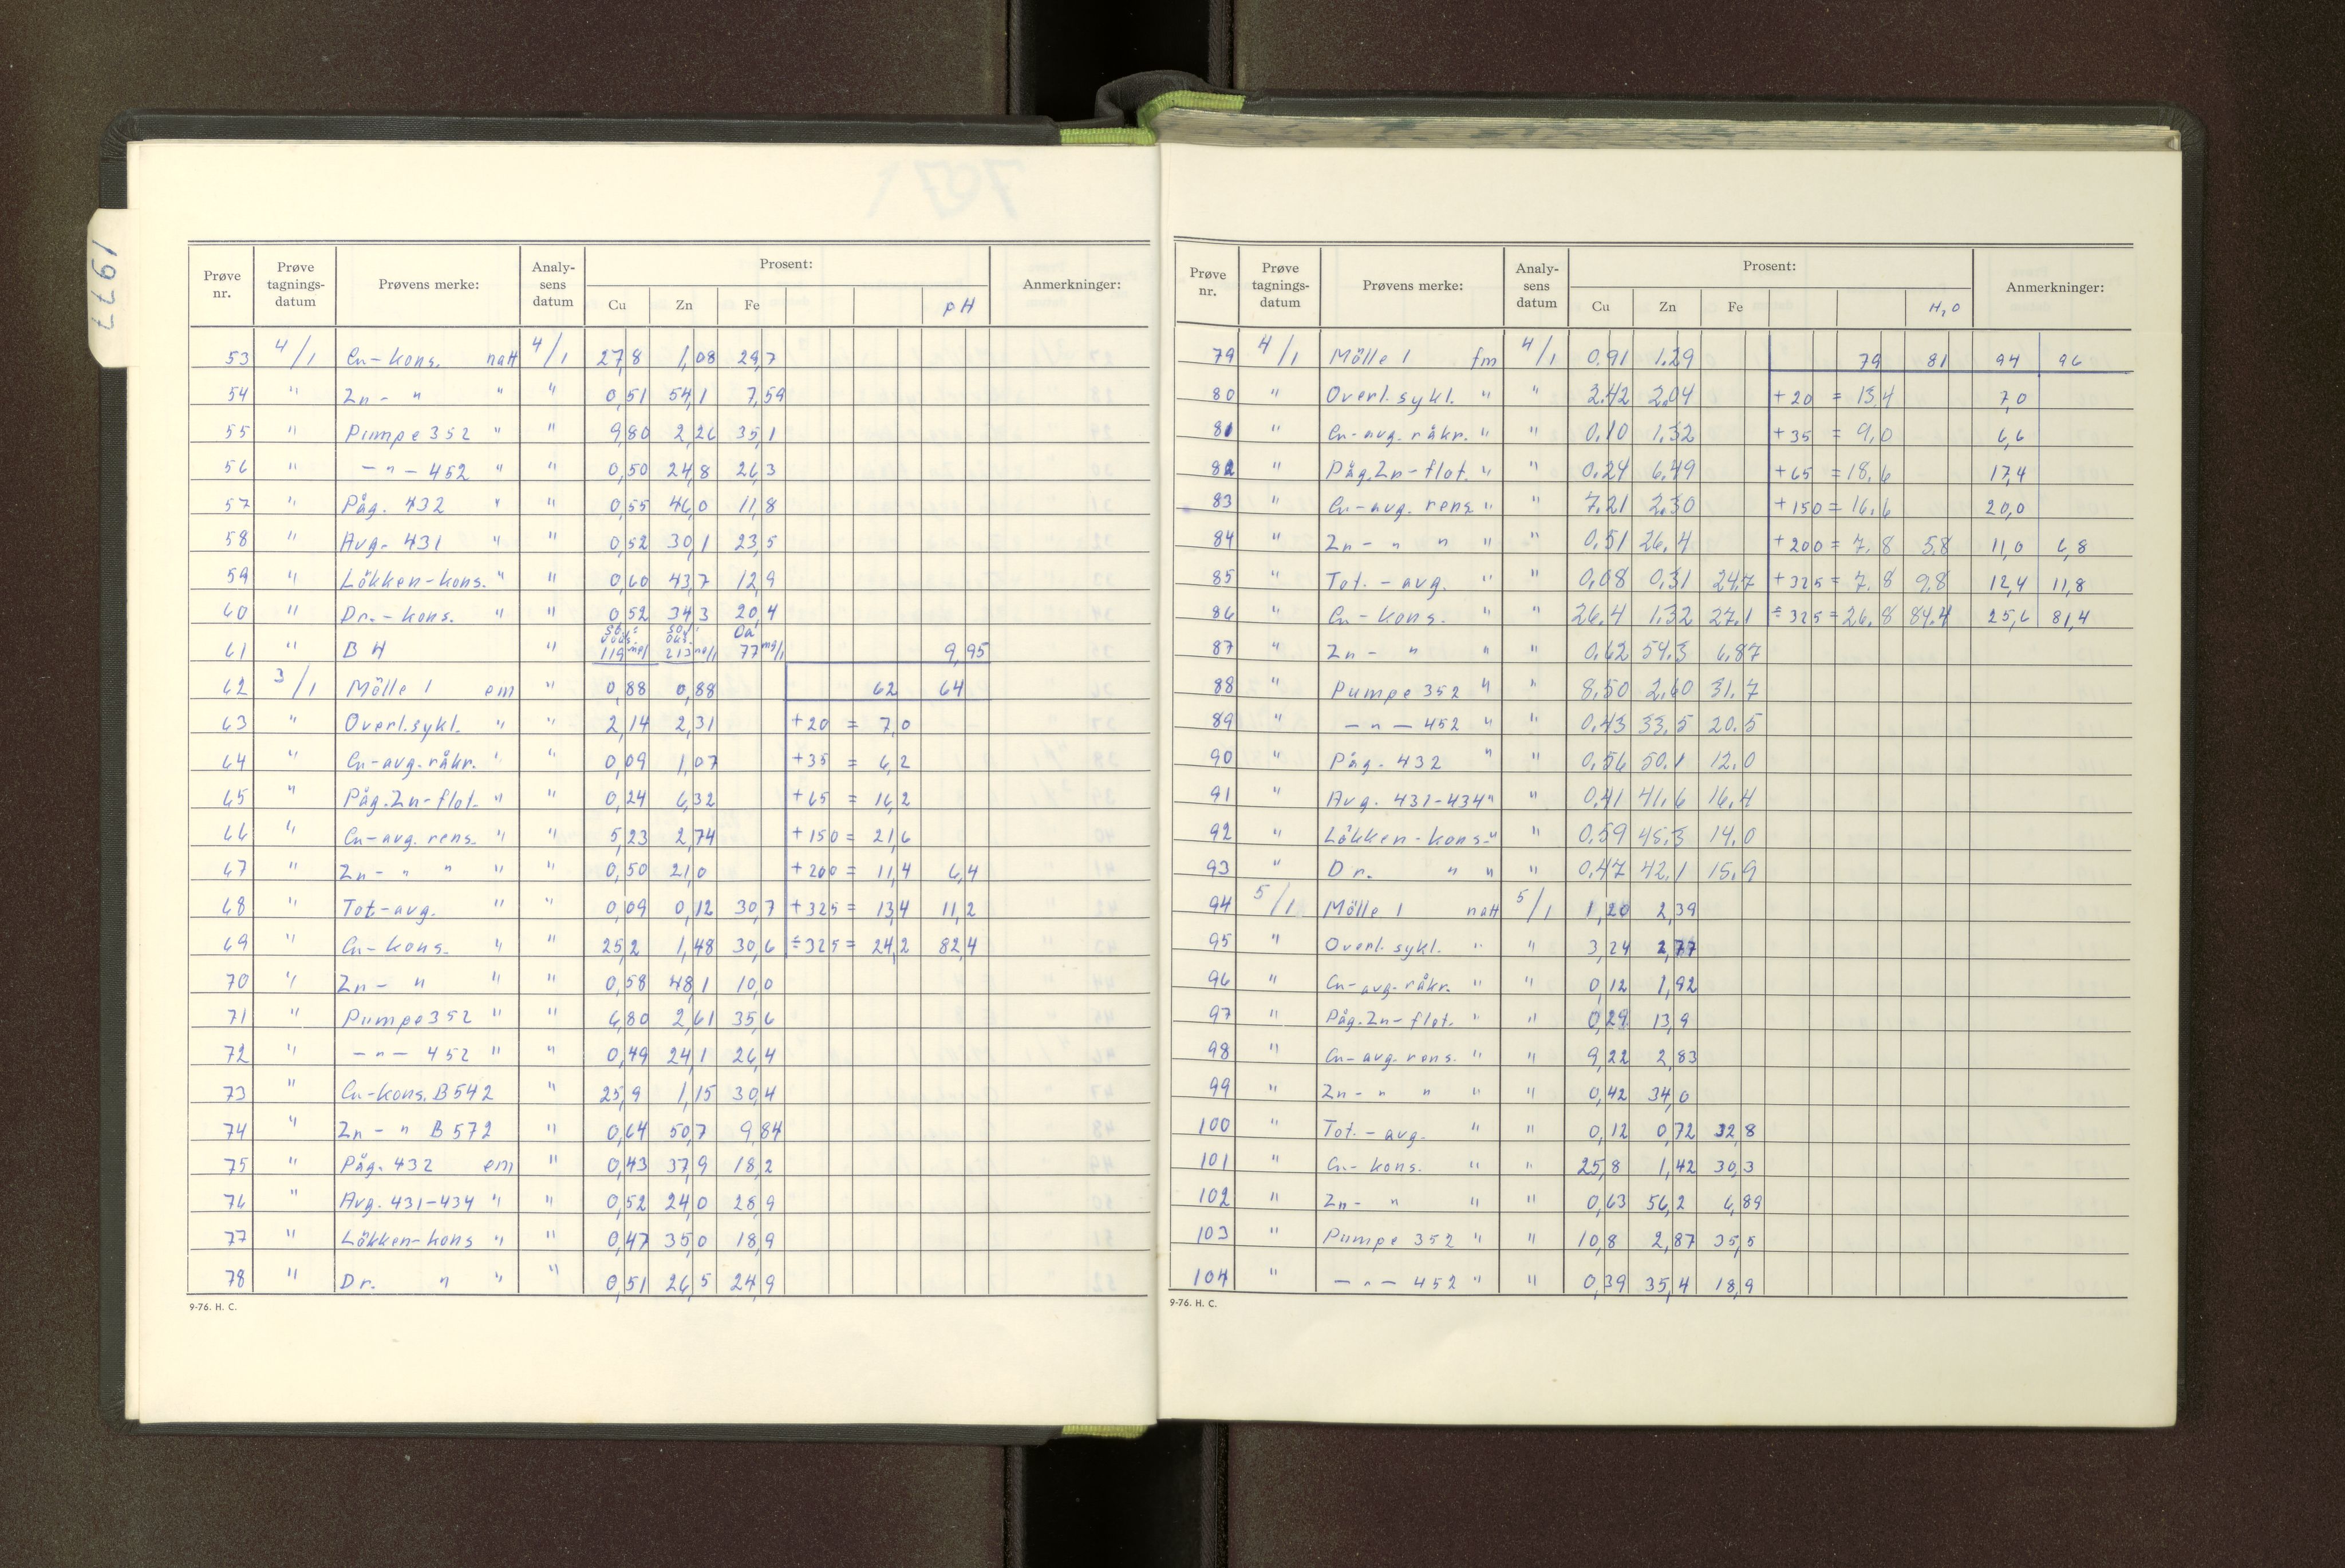 1977
Prøve nr. Prøve tagnings-datum Prøvens merke: Analy-sens datum Prosent: Anmerkninger:
Cu Zn Fe pH
53 4/1 Cu-kons. natt 4/1 27,8 1,08 29,7
54 " Zn- " " " 0,51 54,1 7,59
55 " Pumpe 352 " " 9,80 2,26 35,1
56 " -"- 452 " " 0,50 24,8 26,3
57 " Påg. 432 " " 0,55 46,0 11,8
58 " Avg. 431 " " 0,52 30,1 23,5
59 " Lökken-kons. " " 0,60 43,7 12,9
60 " Dr.-kons. " " 0,52 34,3 20,4
61 " BH " 119 mg/l 213 mg/l 77 mg/l 9,95
62 3/1 Mölle 1 em " 0,88 0,88 62 64
63 " Overl.sykl. " " 2,14 2,31 +20 = 7,0
64 " Cu-avg.råkr. " " 0,09 1,07 +35 = 6,2
65 " Påg.Zn-flot. " " 0,24 6,32 +65 = 16,2
66 " Cu-avg.rens. " " 5,23 2,74 +150 = 21,6
67 " Zn- " " " " 0,50 21,0 +200 = 11,4 6,4
68 " Tot-avg. " " 0,09 0,12 30,7 +325 = 13,4 11,2
69 " Cu-kons. " " 25,2 1,48 30,6 ÷325 = 24,2 82,4
70 " Zn- " " " 0,58 48,1 10,0
71 " Pumpe 352 " " 6,80 2,61 35,6
72 " -"- 452 " " 0,49 24,1 26,4
73 " Cu-kons. B542 " 25,9 1,15 30,4
74 " Zn- " B572 " 0,64 50,7 9,84
75 " Påg. 432 em " 0,43 37,9 18,2
76 " Avg. 431-434 " " 0,52 24,0 28,9
77 " Lökken-kons " " 0,47 35,0 18,9
78 " Dr. " " " 0,51 26,5 24,9
9-76. H. C.
Prøve nr. Prøve tagnings-datum Prøvens merke: Analy-sens datum Prosent: Anmerkninger:
Cu Zn Fe H2O
79 4/1 Mölle 1 fm 4/1 0,91 1,29 79 81 94 96
80 " Overl.sykl. " " 2,42 2,04 +20 = 13,4 7,0
81 " Cu-avg.råkr. " " 0,10 1,32 +35 = 9,0 6,6
82 " Påg.Zn-flot. " " 0,24 6,49 +65 = 18,6 17,4
83 " Cu-avg. rens " " 7,21 2,30 +150 = 16,6 20,0
84 " Zn- " " " " 0,51 26,4 +200 = 7,8 5,8 11,0 6,8
85 " Tot.-avg. " " 0,08 0,31 24,7 +325 = 7,8 9,8 12,4 11,8
86 " Cu-kons. " " 26,4 1,32 27,1 ÷325 = 26,8 84,4 25,6 81,4
87 " Zn- " " " 0,62 54,3 6,87
88 " Pumpe 352 " " 8,50 2,60 31,7
89 " -"- 452 " " 0,43 33,5 20,5
90 " Påg. 432 " " 0,56 50,1 12,0
91 " Avg. 431-434 " " 0,41 41,6 16,4
92 " Lökken-kons. " " 0,59 45,3 14,0
93 " Dr. " " " 0,47 42,1 15,9
94 5/1 Mölle 1 natt 5/1 1,20 2,39
95 " Overl. sykl. " " 3,24 2,77
96 " Cu-avg.råkr. " " 0,12 1,92
97 " Påg.Zn-flot. " " 0,29 13,9
98 " Cu-avg. rens. " " 9,22 2,83
99 " Zn- " " " " 0,42 34,0
100 " Tot.-avg. " " 0,12 0,72 32,8
101 " Cu-kons. " " 25,8 1,42 30,3
102 " Zn- " " " 0,63 56,2 6,89
103 " Pumpe 352 " " 10,8 2,87 35,5
104 " -"- 452 " " 0,39 35,4 18,9
9-76. H. C.